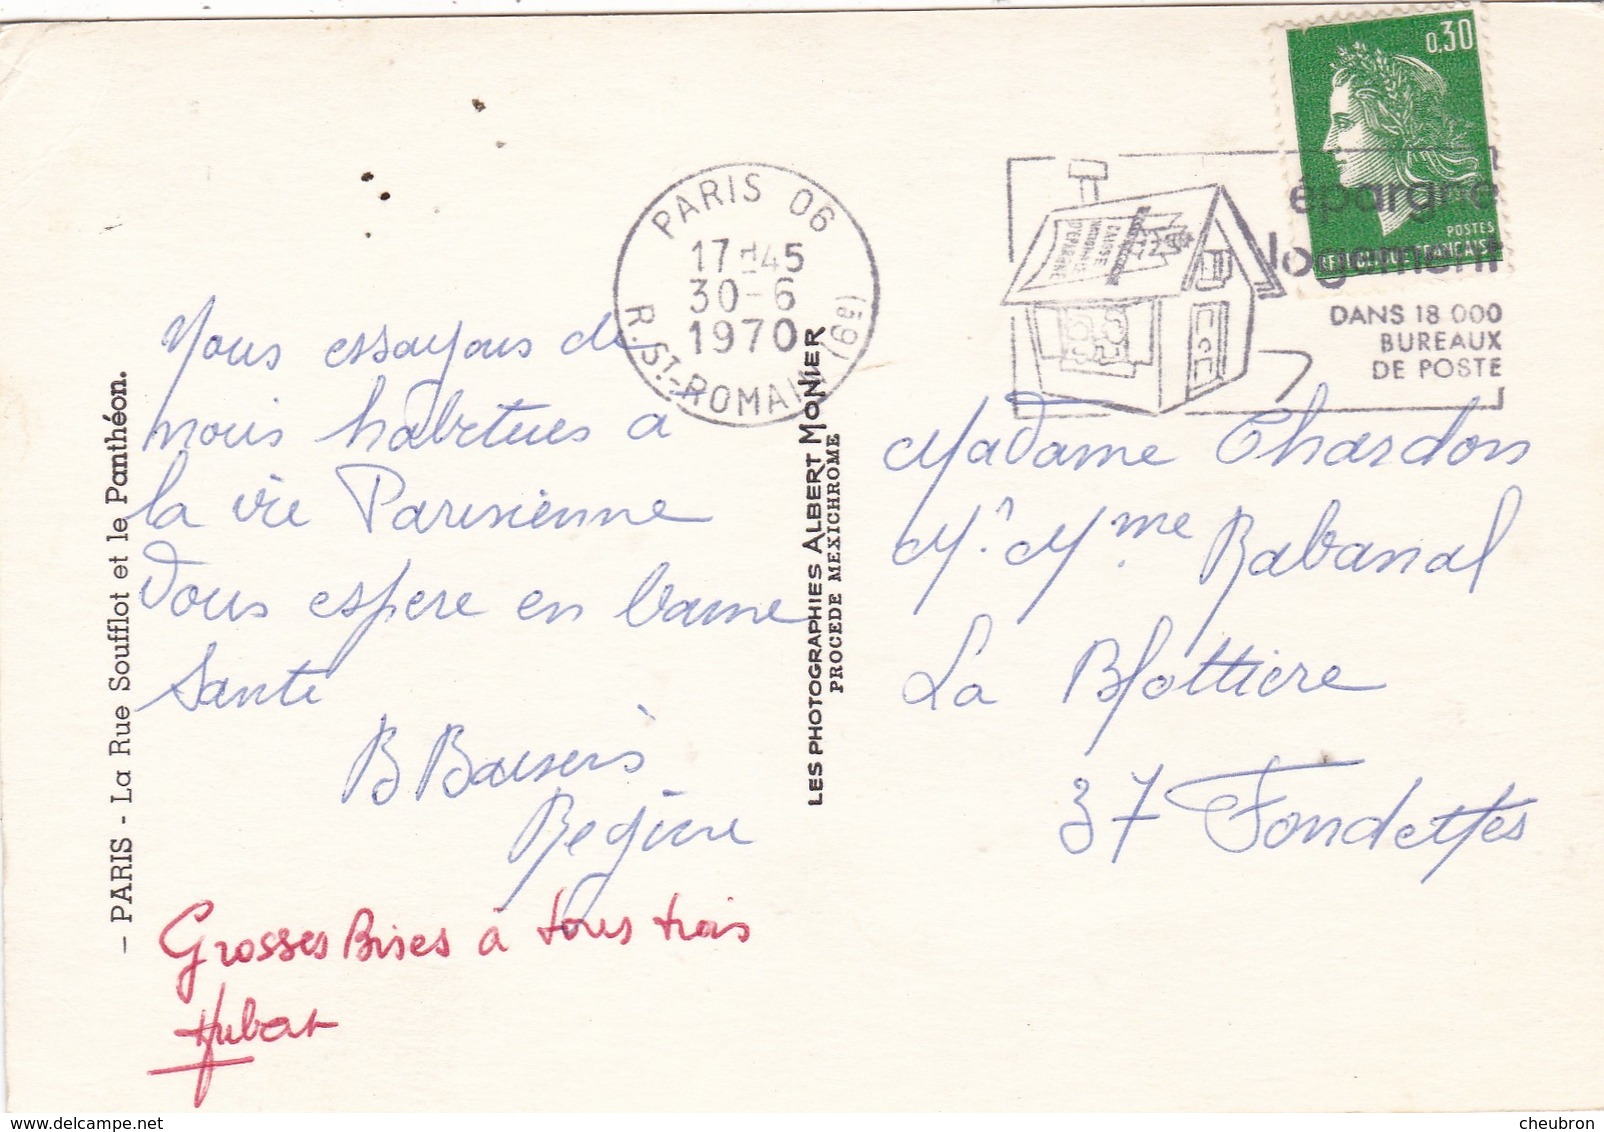 - PARIS - La Rue Soufflot et le Panthéon.
Nous essayons de
nous habitues a
la vie Parisienne
Vous espere en bonne
Santé
B Baisers
Regine
Grosses Bises à tous trois
Hubert
LES PHOTOGRAPHIES ALBERT MONIER
PROCEDE MEXICHROME
PARIS 06
17H45
30-6
1970
R. ST-ROMAIN (69)
CAISSE
NATIONALE
D'EPARGNE
0,30
POSTES
REPUBLIQUE FRANCAISE
épargne
logement
DANS 18 000
BUREAUX
DE POSTE
Madame Chardon
Mr Mme Rabanal
La Blottiere
37 Fondettes
www.delcampe.net
cheubron